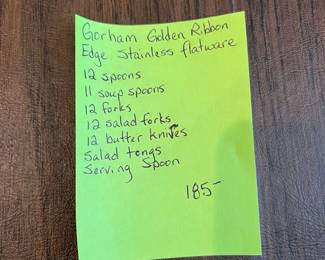 Gorham Golden Ribbon
Edge Stainless flatware
12 spoons
11 soup spoons
12 forks
12 salad forks
12 butter knives
Salad tongs
Serving Spoon
185-